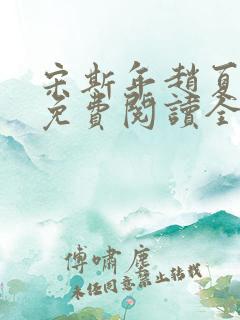 宋斯年趙夏
免費閱讀全
傅嘯塵
未任同意禁止轉載